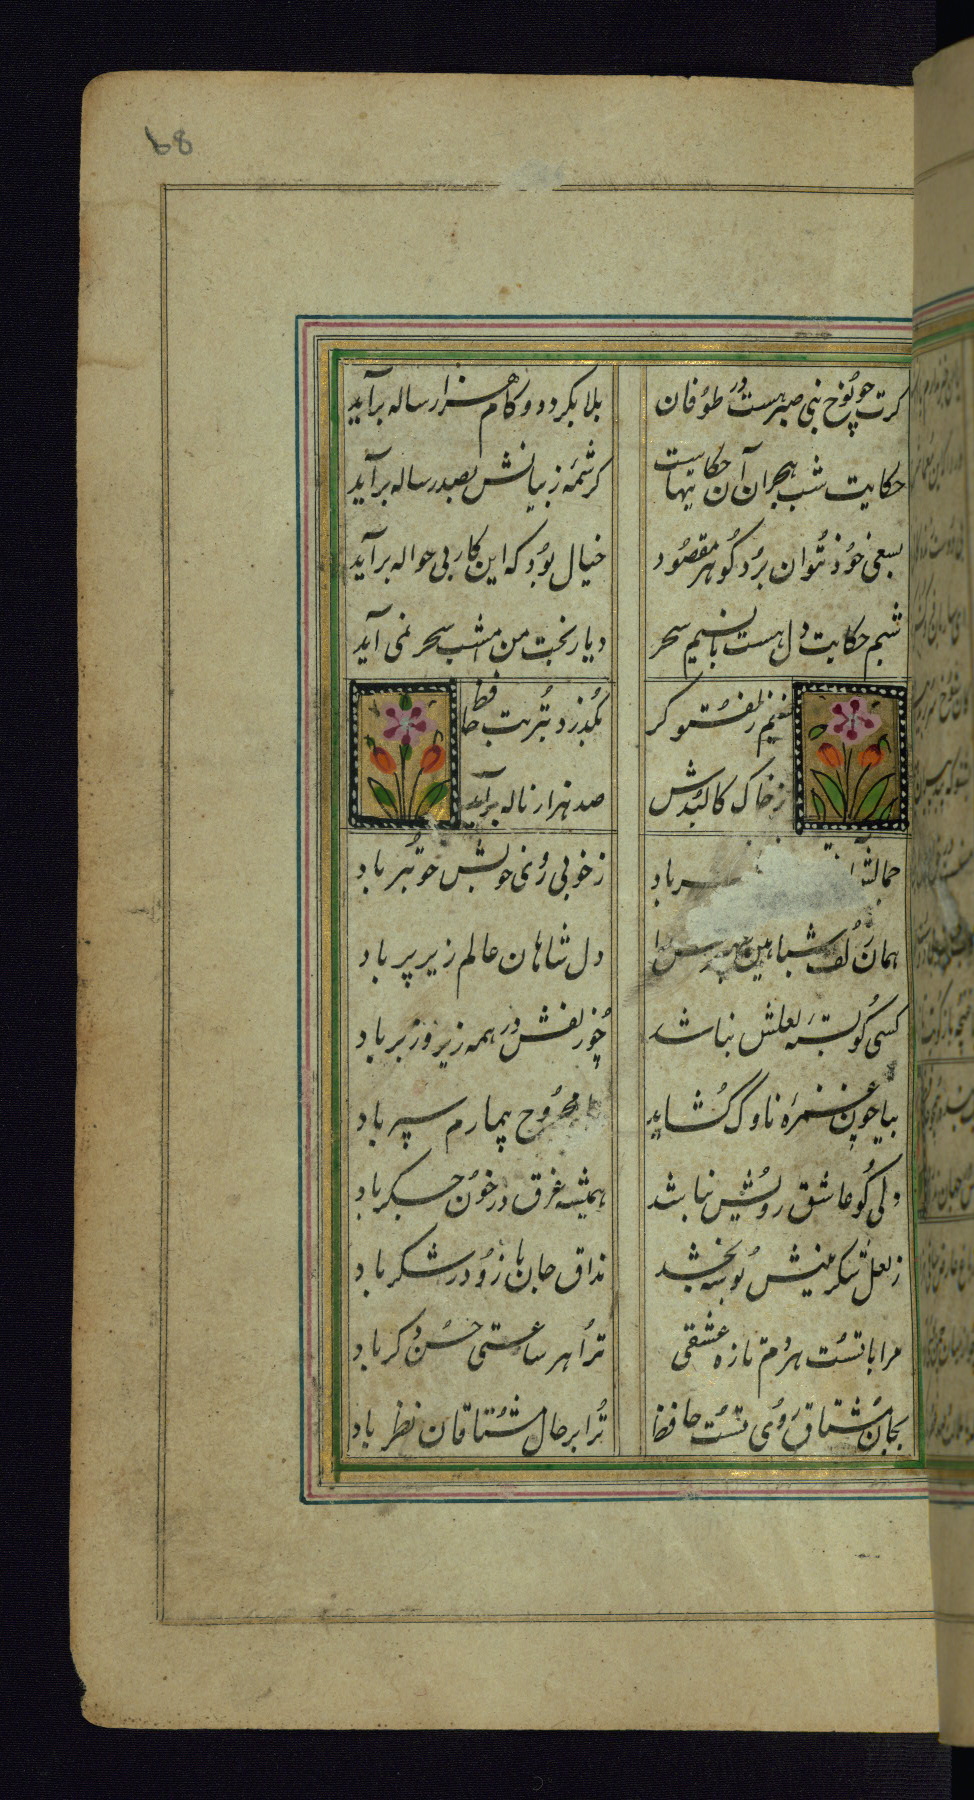 68
گرت چو نوح نبی صبر هست در طوفان بلا بگردد و کام هزار ساله برآید
حکایت شب هجران آن حکایتهاست کرشمه زبیانش بصد رساله برآید
بسعی خود نتوان برد گوهر مقصود خیال بود که این کار بی حواله برآید
دل هست با نسیم سحر من امشب سحر نمی آید
نسیم زلف تو گر بگذرد بتربت حافظ
زخاک کالبدش صد هزار ناله برآید
باد زخوبی روی خوبش خوبتر باد
همان زلف شاهین دل شاهان عالم زیر پر باد
کسی کو بسته لعلش نباشد چو زلفش در همه زیر و زبر باد
بیا چون غمزه ناوک گشاید مجروح بیمارم سپر باد
ولی کو عاشق رویش نباشد همیشه غرق در خون جگر باد
زلعل شکرینش بوسه بخشد مذاق جان بازو در شکر باد
مرا با تست هر دم تازه عشقی ترا هر ساعتی حسن دگر باد
بجان مشتاق روی تست حافظ ترا بر حال مشتاقان نظر باد